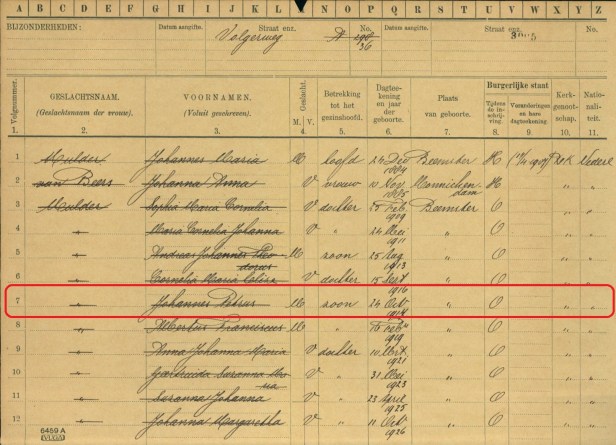 A B C D E F G H I J K L M N O P Q R S T U V W X Y Z
BIJZONDERHEDEN: Datum aangifte. Straat enz. No. Datum aangifte. Straat enz. No.
Volgerweg A 298
36
Volgnummer. GESLACHTSNAAM. VOORNAMEN. Geslacht. Betrekking Dagteekening Plaats Burgerlijke staat Kerkgenootschap. Nationaliteit.
(Geslachtsnaam der vrouw.) (Voluit geschreven.) M. V. tot het gezinshoofd. en jaar der geboorte. van geboorte. Tijdens de inschrijving. Veranderingen en hare dagteekening
1. 2. 3. 4. 5. 6. 7. 8. 9. 10. 11.
1 Mulder Johannes Maria M hoofd 26 Dec Beemster H R.K. Nederl
2 van Beers Johanna Anna V vrouw 10 Nov Monnickendam H " "
3 Mulder Sophia Maria Cornelia V dochter 25 Feb 1909 Beemster O " "
4 Maria Cornelia Johanna V " 26 Mei 1911 " O " "
5 Andreas Johannes Theodorus M zoon 25 Aug 1913 " O " "
6 Cornelia Maria V dochter 15 Sept 1916 " O " "
7 Johannes Petrus M zoon 26 Oct " O " "
8 Albertus Franciscus M " Feb 1919 " O " "
9 Anna Johanna Maria V dochter 10 1921 " O " "
10 Geertruida Susanna Maria V " 31 Mei 1923 " O " "
11 Susanna Johanna V " 23 April 1925 " O " "
12 Johanna Margaretha V " 11 Oct 1926 " O " "
6489 A
(VUGA)